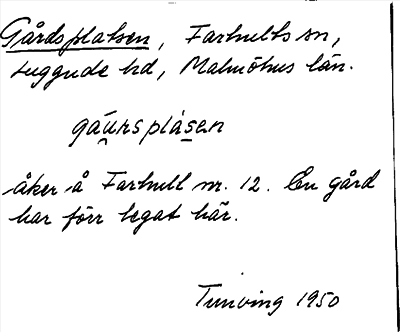 Gårdsplatsen, Farhults sn,
Luggude hd, Malmöhus län.
gáu̯rspláse̠n
åker å Farhult nr. 12. En gård
har förr legat här.
Tunving 1950